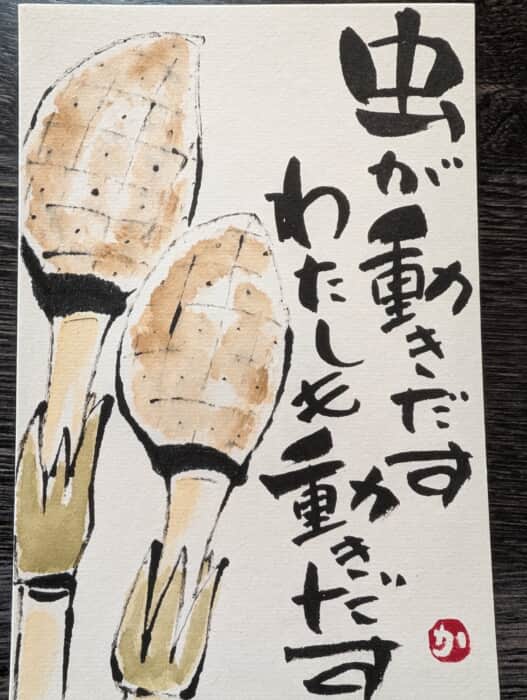 虫が動きだす
わたしも動きだす
か